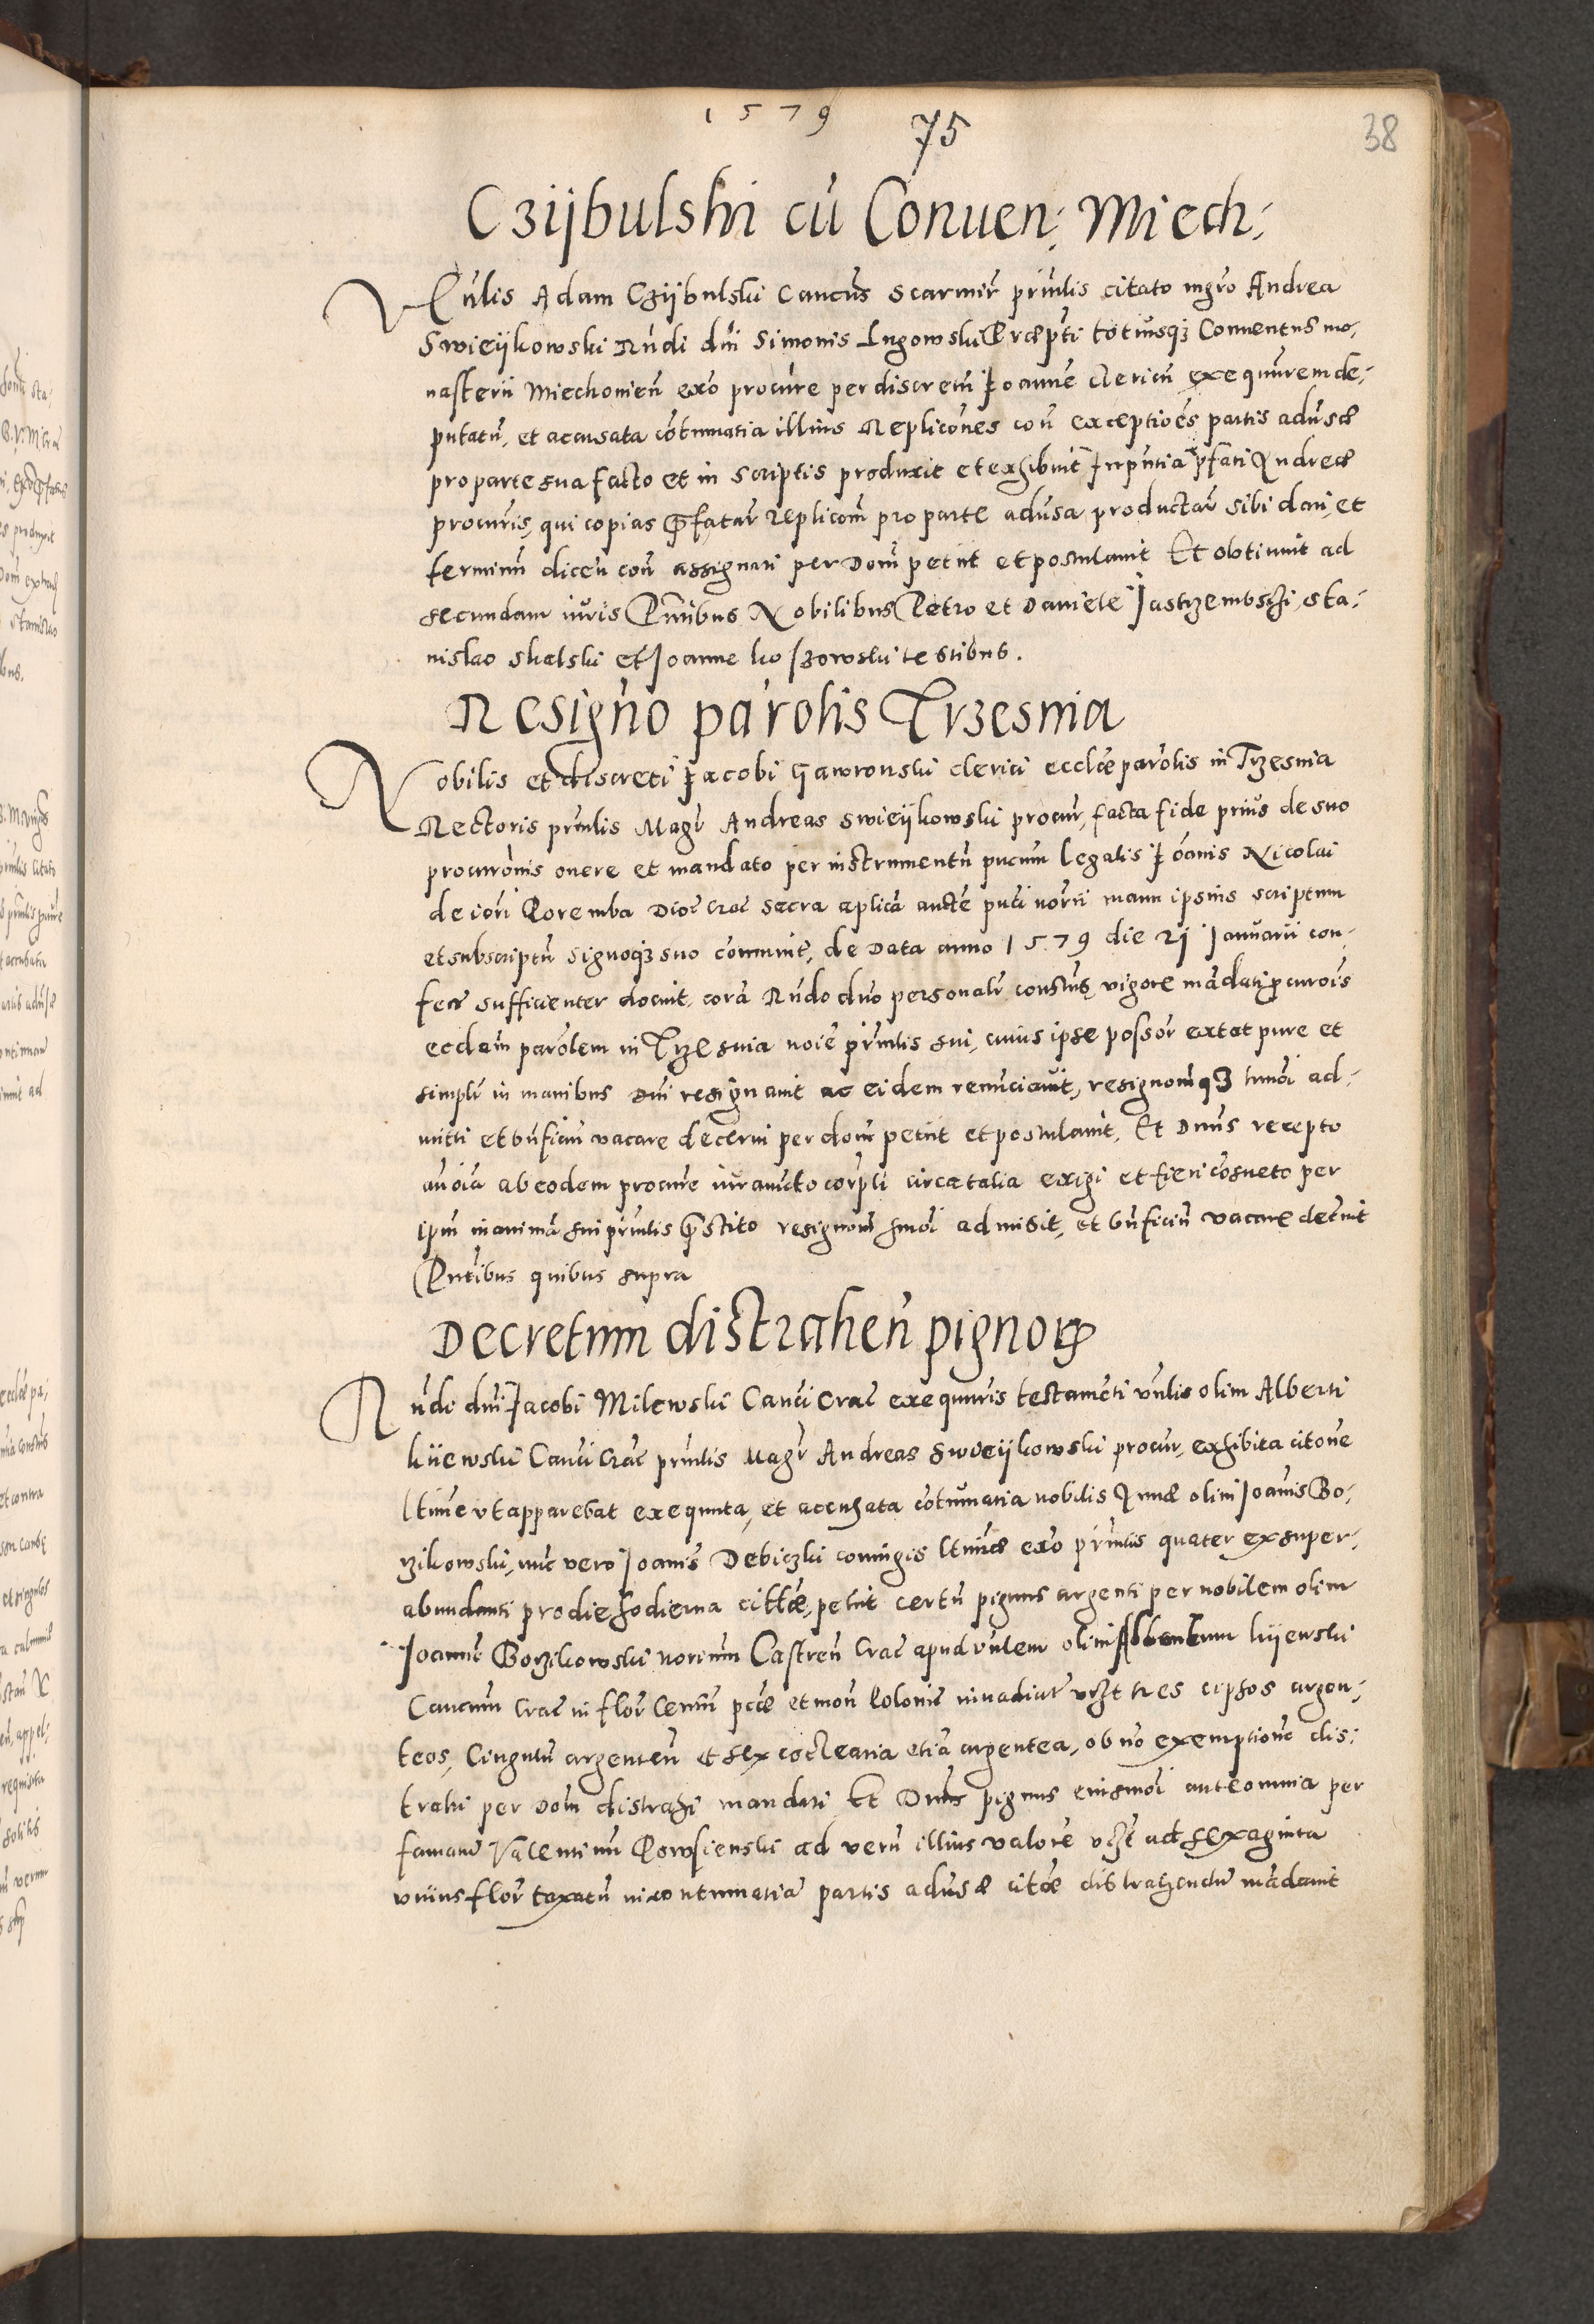 1579
75
38
Czijbulski cu͂ Conuen: Miech:
Vẽnlis Adam Czijbulski Cancu͂s Scarmir͂ prin͂lis citato mgr͂o Andrea
Swieijkowski Ru͂di dn͂i Simonis Lugowski Præpt͂i totiusq3 Conuentus mo-
nasterii Miechouien͂ exo͂ procur͂e per discretu͂ Joanne͂ clericu͂ exequu͂rem de-
putatu͂, et accusata co͂tumatia illius Replico͂nes con͂ exceptio͂es partis adu͂sæ
pro parte sua facto et in scriptis produxit et exhibuit In pn͂tia p͂fati Andreæ
procur͂is, qui copias p͂fatar͂ replicom͂ pro parte adu͂sa productar͂ sibi dari, et
terminu͂ dicen͂ con͂ assignari per Dom͂ petiit et postulauit Et obtinuit ad
secundam iuris Pn͂tibus Nobilibus Petro et Daniele Jastrzembschi, Sta-
nislao Skalski et Joanne koszowski testibus.
Resign͂o par͂olis Trzesnia
Nobilis et discreti Jacobi Gawronski clerici eccl͂æ par͂olis in Trzesnia
Rectoris prin͂lis Mag͂r Andreas Swieijkowski procur͂, facta fide prius de suo
procuro͂nis onere et mandato per instrumentu͂ pucum legalis Jo͂anis Nicolai
de iori Poremba Dioc͂ Crac͂ sacra aplica͂ aucte͂ puci͂ norii͂ manu ipsius scriptum
et subscriptu͂ signoq3 suo co͂muni͂t, de Data anno 1579 die 2j Januarii con-
fect͂ sufficienter docuit, cora͂ Ru͂do dn͂o personalr͂ constus͂ vigore ma͂dati procurois͂
eccl͂am par͂olem in Trzesnia noi͂e prin͂lis sui, cuius ipse possor͂ extat pure et
simplr͂ in manibus Dn͂i resignauit ac eidem renu͂ciauit, resignom͂q3 hmo͂i ad-
mitti et bn͂ficiu͂ vacare decerni per dom͂ petiit et postulauit. Et Dn͂us recepto
an͂ oi͂a ab eodem procur͂e iuram͂to corp͂li circa talia exigi et fieri co͂sueto per
ipm͂ in anima͂ sui prin͂lis p͂stito resignom͂ hmo͂i admisit, et bn͂ficiu͂ vacare decr͂uit
Pn͂tibus quibus supra
Decretum distrahen͂ pignorꝝ
Ru͂di dn͂i Jacobi Milewski Canci͂ Crac͂ exequu͂ris testame͂ti vn͂lis olim Alberti
kijewski Canci͂ Crac͂ prin͂lis Mag͂r Andreas Swieijkowski procur͂, exhibita cito͂ne
ltim͂e vt apparebat exequuta, et accusata co͂tumatia nobilis Annæ olim Joanis͂ Bo-
rzikowski, nu͂c vero Joanis͂ Debiczki coniugis ltimæ͂ exo͂ prin͂lis quater ex super-
abundanti pro die hodierna citt͂æ, petiit certu͂ pignus argenti per nobilem olim
Joanne͂ Borzikowski norium͂ Castren͂ Crac͂ apud vn͂lem olim Albertum kijewski
Cancum͂ Crac͂ in flor͂ centu͂ pec͂æ et mon͂ Poloni͂c inuadiat͂ vczt tres ciphos argen-
teos, Cingulu͂ argenteu͂ et sex coclearia etia͂ argentea, ob no͂ exemptione͂ dis-
trahi per Dom͂ distrahi mandari Et Dn͂us pignus eiusmo͂i ante omnia per
famatu͂ Valentinu͂ Powsienski ad veru͂ illius valore͂ vczt ad sexaginta
vnius flor͂ taxatu͂ in contumatia͂ partis adu͂sæ cit͂æ distrahendu͂ ma͂dauit